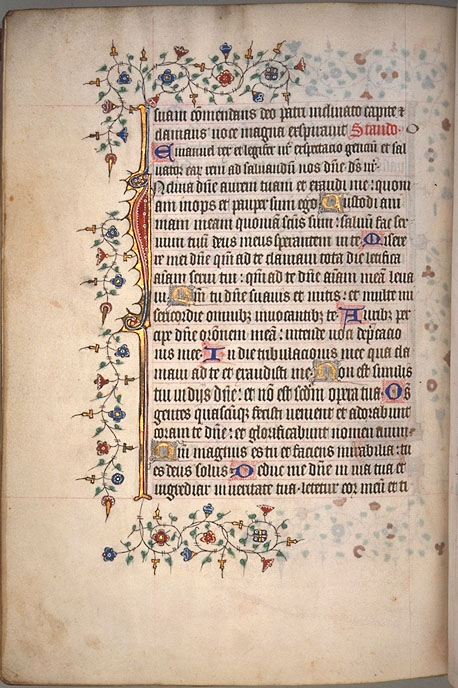 suam cōmendans deo patri inclinato capite ⁊
clamans uoce magna expirauit Stando.
Emanuel rex et legifer nr̄ expectacio genciū et sal
uator eaꝝ veni ad saluandū nos dn̄e ds̄ nr̄
Inclina dn̄e aurem tuam et exaudi me: quoni
am inops et pauper sum ego Custodi ani
mam meam quoniam scūs sum: saluū fac ser
uum tuū deus meus sperantem in te. Misere
re mei dn̄e qm̄ ad te clamaui tota die letifica
aīam serui tui: qm̄ ad te dn̄e aīam meā leua
ui. Qm̄ tu dn̄e suauis et mitis: et multe mi
sericordie omnibꝫ inuocantibꝫ te Auribꝫ per
cipe dn̄e orōnem meā: intende uoci dep̄cacio
nis mee In die tribulacionis mee qua cla
maui ad te et exaudisti me. Non est similis
tui in dijs dn̄e: et nō est scd̄m opera tua Om̄s
gentes quascūqꝫ fecisti uenient et adorabunt
coram te dn̄e: et glorificabunt nomen tuum
Qm̄ magnus es tu et faciens mirabilia: tu
es deus solus Deduc me dn̄e in uia tua et
ingrediar in ueritate tua: letetur cor meū et ti